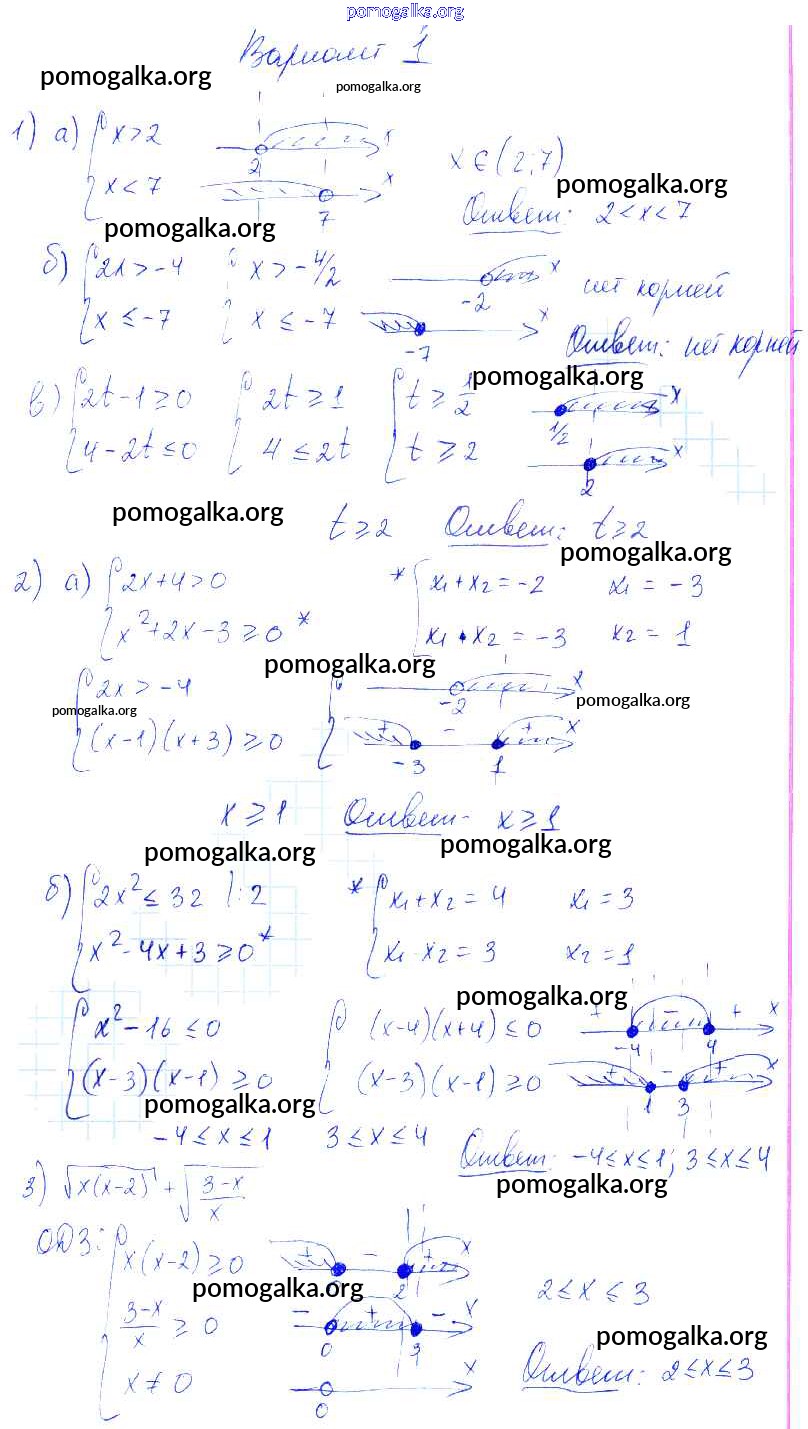 pomogalka.org
Вариант 1
pomogalka.org
pomogalka.org
1) а) { x>2
x<7
2
x
7
x
x∈(2;7)
pomogalka.org
Ответ: 2<x<7
pomogalka.org
б) { 2x>-4 { x>-4/2
x≤-7 x≤-7
-2
x
-7
x
нет корней
Ответ: нет корней
pomogalka.org
в) { 2t-1≥0 { 2t≥1 { t≥1/2
4-2t≤0 4≤2t t≥2
1/2
x
2
x
pomogalka.org
t≥2 Ответ: t≥2
pomogalka.org
2) а) { 2x+4>0 * { x₁+x₂=-2 x₁=-3
x²+2x-3≥0* x₁•x₂=-3 x₂=1
pomogalka.org
{ 2x>-4 {
-2
x
pomogalka.org
pomogalka.org
(x-1)(x+3)≥0
+ - +
-3 1
x
x≥1 Ответ- x≥1
pomogalka.org
pomogalka.org
б) { 2x²≤32 |:2 * { x₁+x₂=4 x₁=3
x²-4x+3≥0* x₁·x₂=3 x₂=1
pomogalka.org
{ x²-16≤0 { (x-4)(x+4)≤0
+ - +
-4 4
x
(x-3)(x-1)≥0 (x-3)(x-1)≥0
+ - +
1 3
x
pomogalka.org
-4≤x≤1 3≤x≤4
Ответ: -4≤x≤1; 3≤x≤4
pomogalka.org
3) √x(x-2) + √(3-x)/x
ОДЗ: { x(x-2)≥0
+ - +
2
x
pomogalka.org
2≤x≤3
(3-x)/x ≥0
- + -
0 3
x
pomogalka.org
x≠0
0
x
Ответ: 2≤x≤3